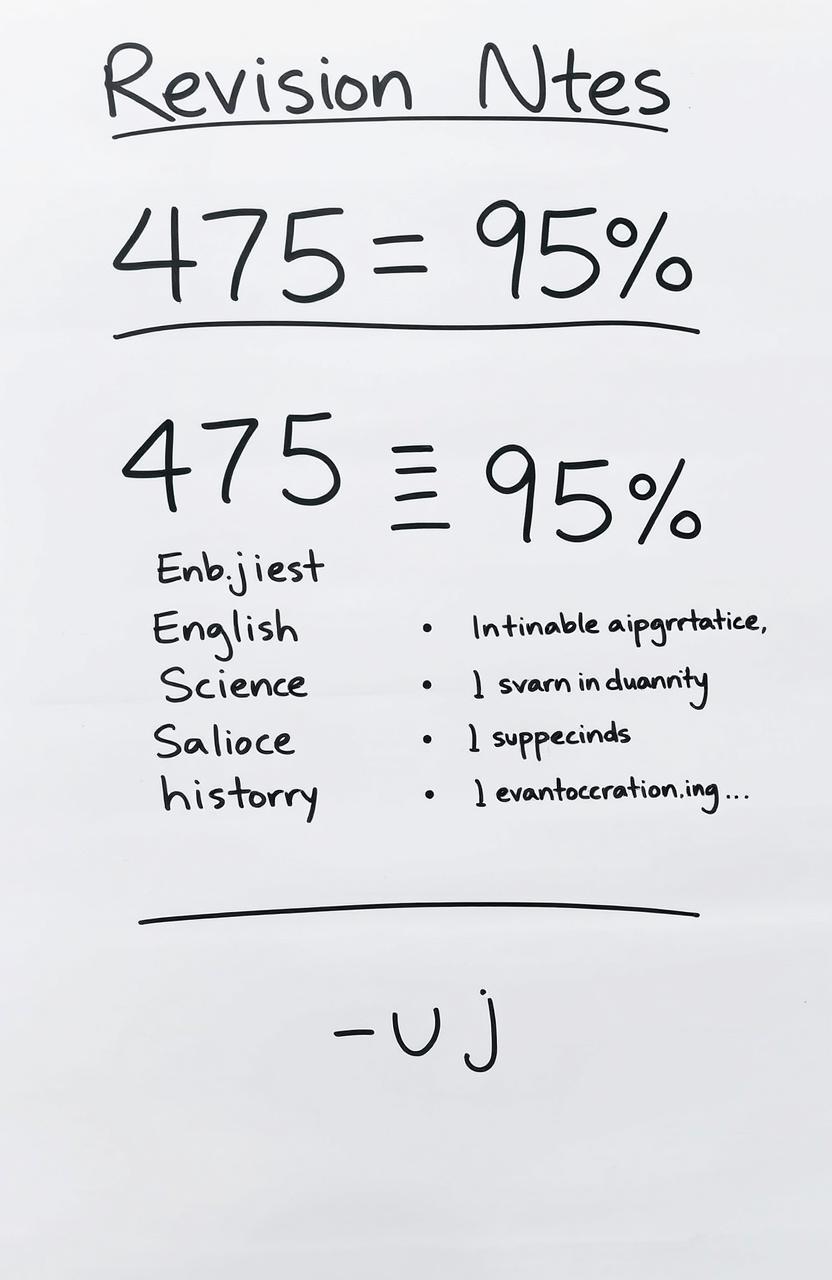 Revision Ntes
475 = 95%
475 ≡ 95%
Enb.jiest
English
• Intinable aipgrrtatice,
Science
• 1 svarn in duannity
Salioce
• 1 suppecinds
historry
• 1 evantoccration.ing...
- u j